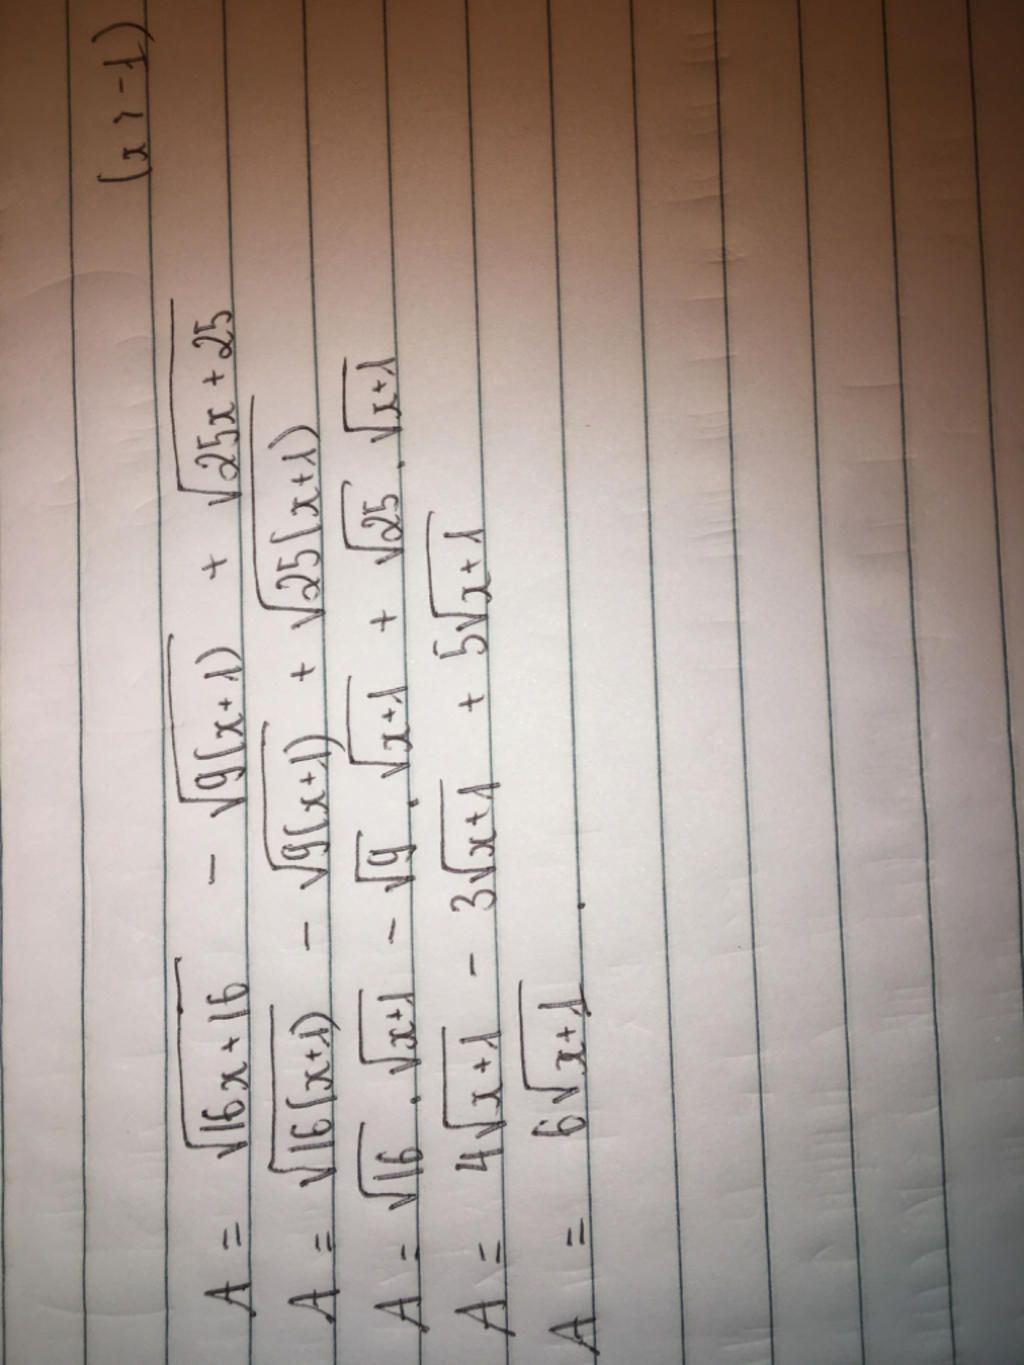 (x > -1)
A = √(16x+16) - √(9(x+1)) + √(25x+25)
A = √(16(x+1)) - √(9(x+1)) + √(25(x+1))
A = √16 . √(x+1) - √9 . √(x+1) + √25 . √(x+1)
A = 4√(x+1) - 3√(x+1) + 5√(x+1)
A = 6√(x+1) .